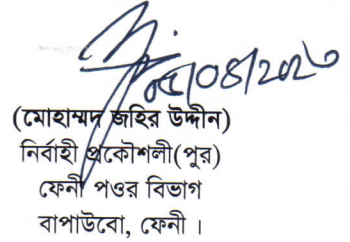 ০৫/০৪/২০২৩
(মোহাম্মদ জহির উদ্দীন)
নির্বাহী প্রকৌশলী(পুর)
ফেনী পওর বিভাগ
বাপাউবো, ফেনী ।